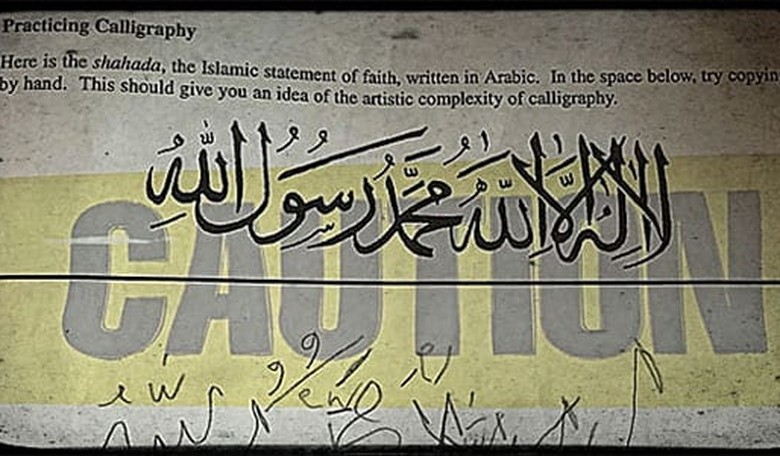 Practicing Calligraphy
Here is the shahada, the Islamic statement of faith, written in Arabic. In the space below, try copyin
by hand. This should give you an idea of the artistic complexity of calligraphy.
لا إله إلا الله محمد رسول الله
CAUTION